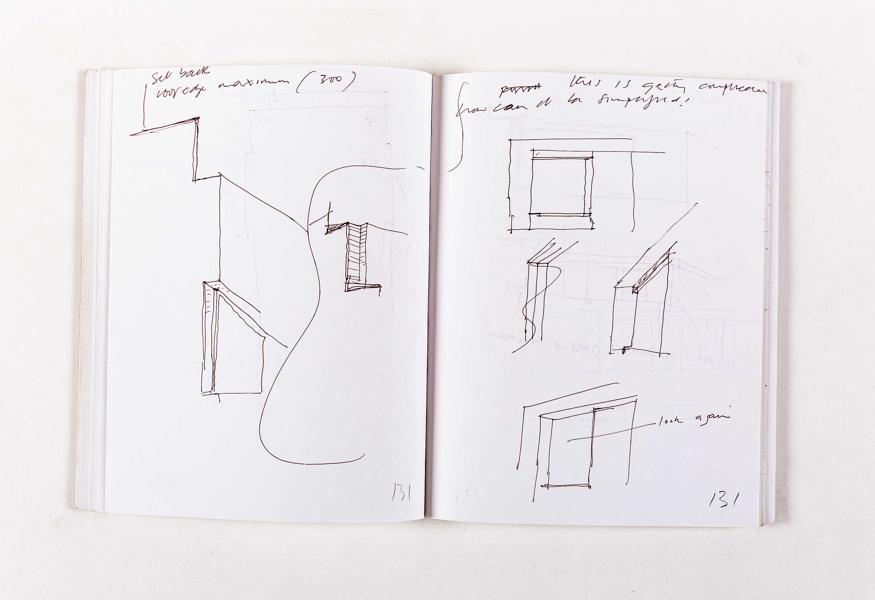 Set back
roof edge maximum (300)
131
this is getting complicated
how can it be simplified!
look again
131